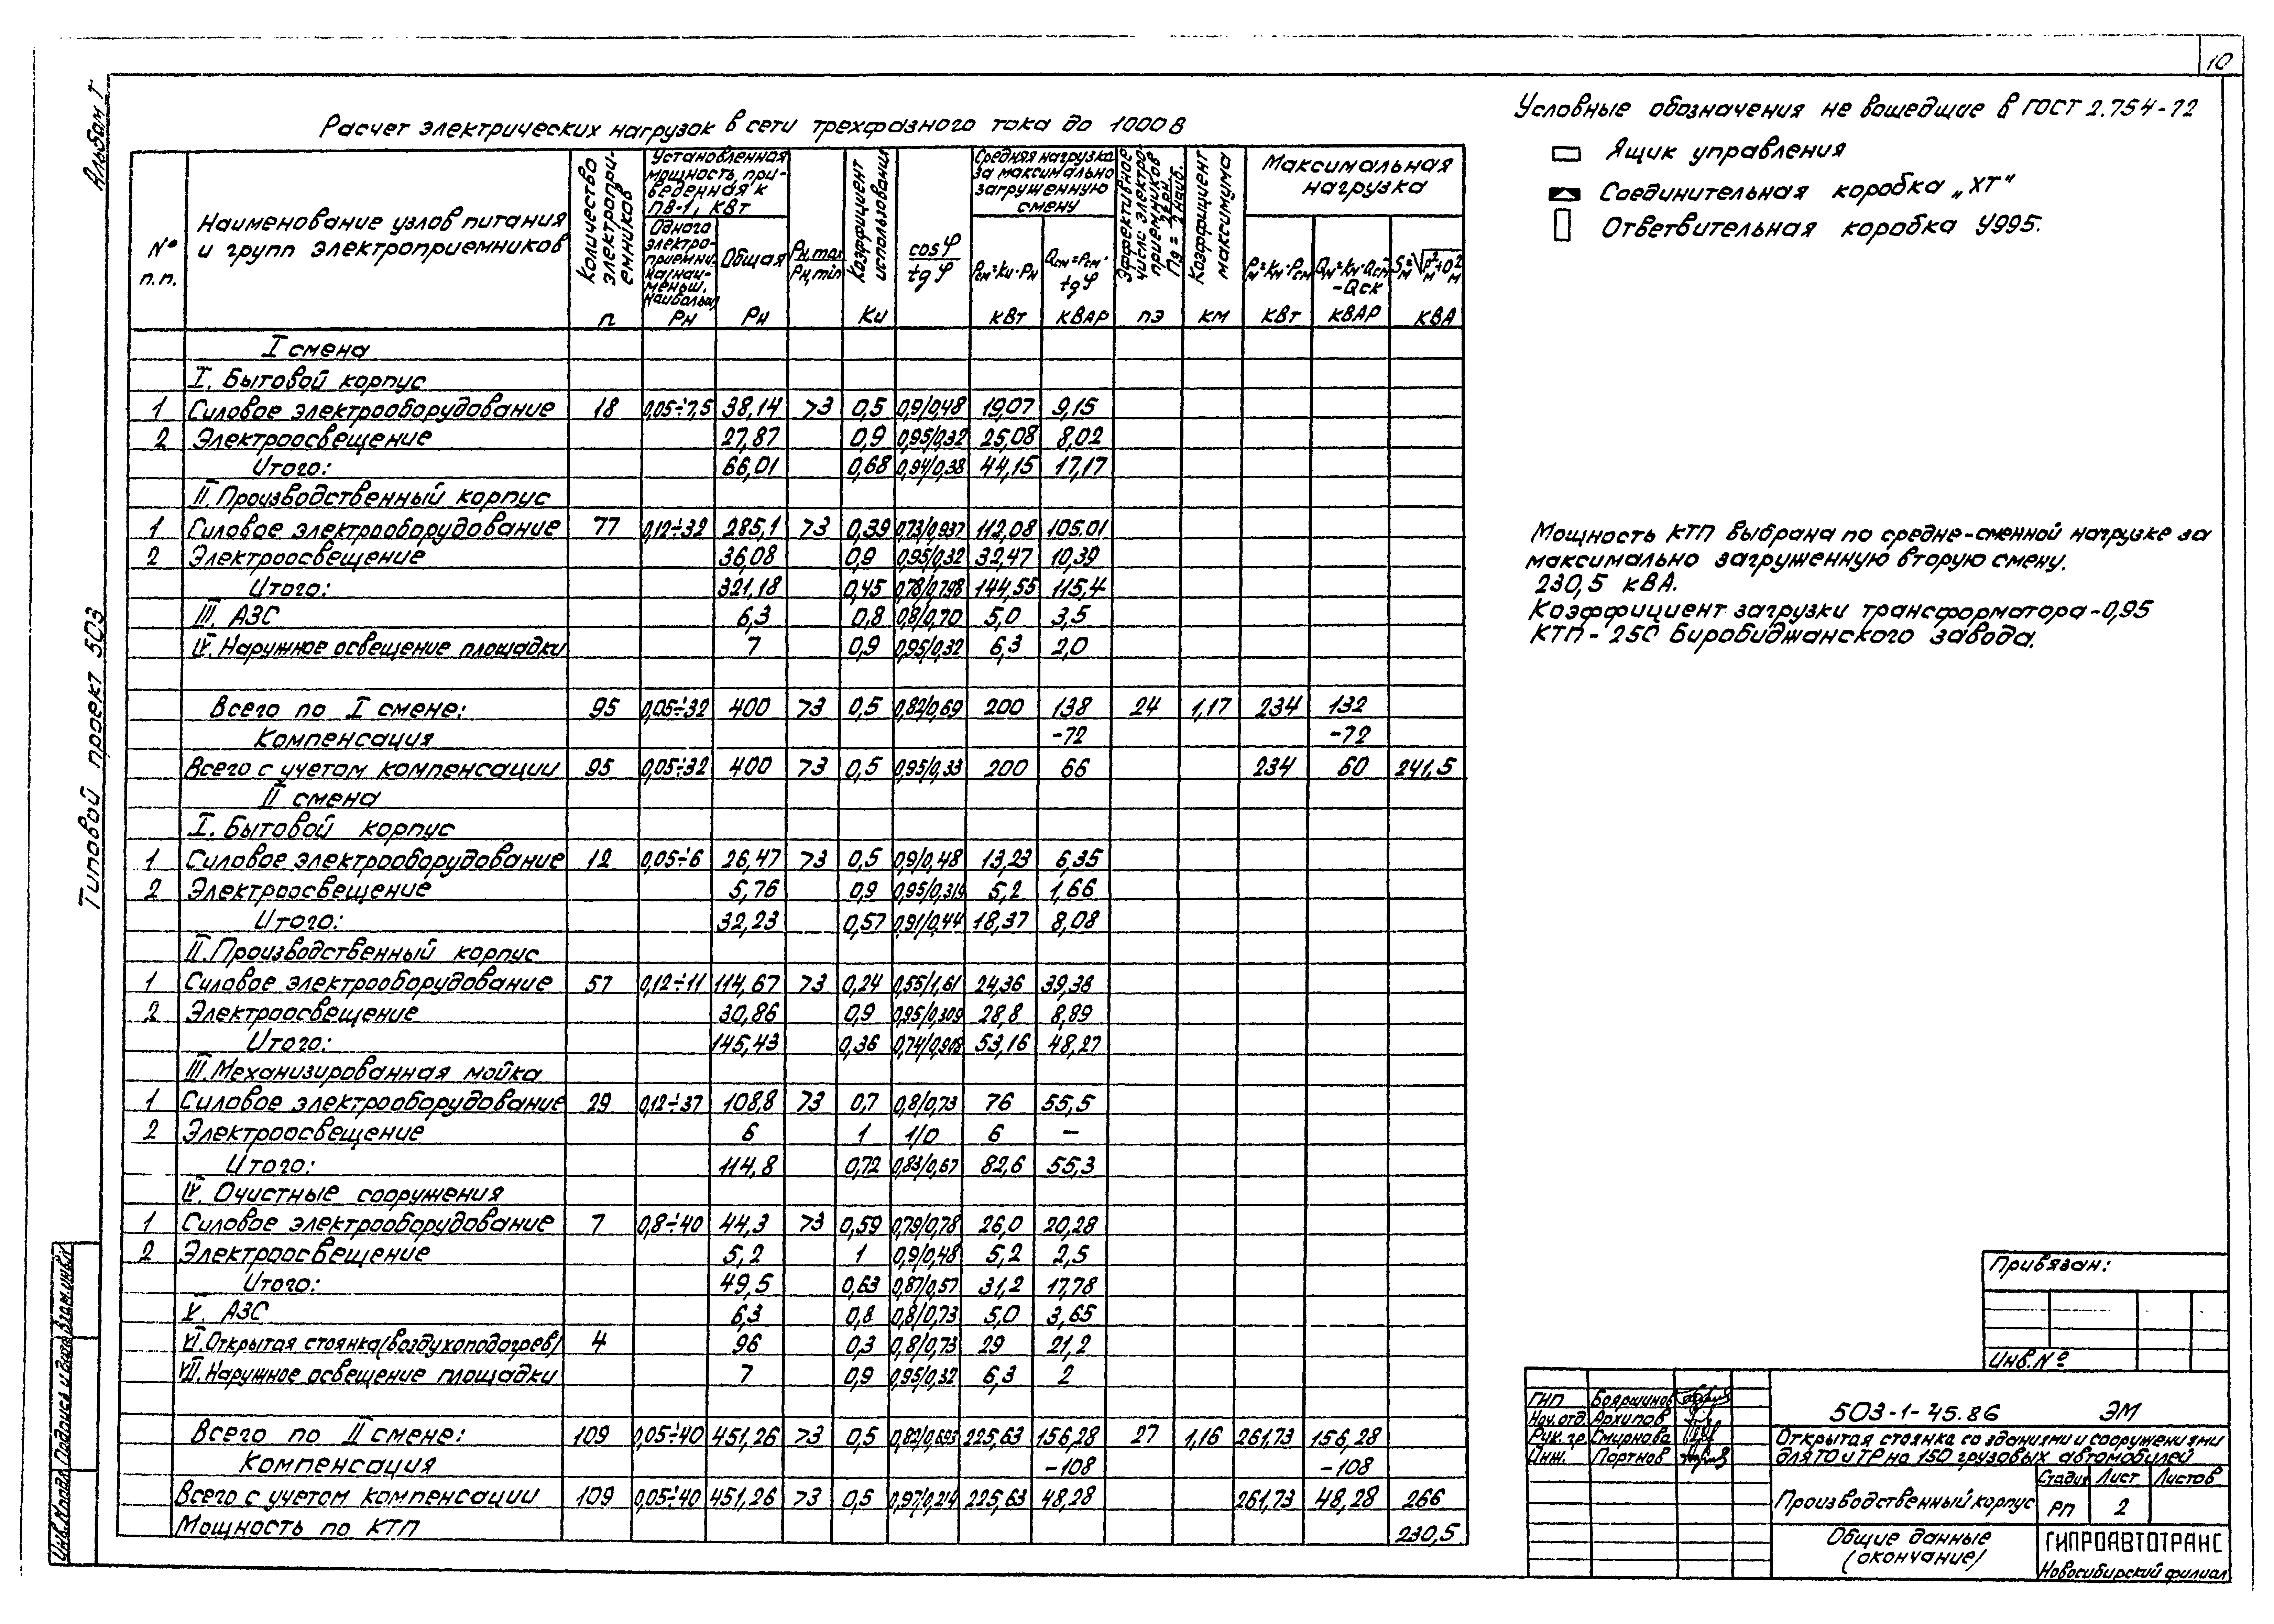 10
Альбом I
Типовой проект 503
Расчет электрических нагрузок в сети трехфазного тока до 1000 В
№ п.п.
Наименование узлов питания и групп электроприемников
Количество электроприемников n
Установленная мощность, приведенная к ПВ-1, кВт
Одного электроприемника/наименьш. наибольш/ Рн
Общая Рн
Рн,max Рн,min
Коэффициент использования Ки
cosφ tgφ
Средняя нагрузка за максимально загруженную смену
Рсм=Ки·Рн кВт
Qсм=Рсм·tgφ КВАР
Эффективное число электроприемников nэ
Коэффициент максимума км
Максимальная нагрузка
Рм=Км·Рсм кВт
Qм=Км·Qсм-Qск КВАР
Sм=√Р²м+Q²м кВА
I смена
I. Бытовой корпус
1 Силовое электрооборудование 18 0,05÷7,5 38,14 >3 0,5 0,9/0,48 19,07 9,15
2 Электроосвещение 27,87 0,9 0,95/0,32 25,08 8,02
Итого: 66,01 0,68 0,94/0,38 44,15 17,17
II. Производственный корпус
1 Силовое электрооборудование 77 0,12÷32 285,1 >3 0,39 0,73/0,937 112,08 105.01
2 Электроосвещение 36,08 0,9 0,95/0,32 32,47 10,39
Итого: 321,18 0,45 0,78/0,798 144,55 115,4
III. АЗС 6,3 0,8 0,8/0,70 5,0 3,5
IV. Наружное освещение площадки 7 0,9 0,95/0,32 6,3 2,0
Всего по I смене: 95 0,05÷32 400 >3 0,5 0,82/0,69 200 138 24 1,17 234 132
Компенсация -72 -72
Всего с учетом компенсации 95 0,05÷32 400 >3 0,5 0,95/0,33 200 66 234 60 241,5
II смена
I. Бытовой корпус
1 Силовое электрооборудование 12 0,05÷6 26,47 >3 0,5 0,9/0,48 13,23 6,35
2 Электроосвещение 5,76 0,9 0,95/0,319 5,2 1,66
Итого: 32,23 0,57 0,91/0,44 18,37 8,08
II. Производственный корпус
1 Силовое электрооборудование 57 0,12÷11 114,67 >3 0,24 0,55/1,61 24,36 39,38
2 Электроосвещение 30,86 0,9 0,95/0,309 28,8 8,89
Итого: 145,43 0,36 0,74/0,908 53,16 48,27
III. Механизированная мойка
1 Силовое электрооборудование 29 0,12÷37 108,8 >3 0,7 0,8/0,73 76 55,5
2 Электроосвещение 6 1 1/0 6 —
Итого: 114,8 0,72 0,83/0,67 82,6 55,3
IV. Очистные сооружения
1 Силовое электрооборудование 7 0,8÷40 44,3 >3 0,59 0,79/0,78 26,0 20,28
2 Электроосвещение 5,2 1 0,9/0,48 5,2 2,5
Итого: 49,5 0,63 0,87/0,57 31,2 17,78
V. АЗС 6,3 0,8 0,8/0,73 5,0 3,65
VI. Открытая стоянка/воздухоподогрев/ 4 96 0,3 0,8/0,73 29 21,2
VII. Наружное освещение площадки 7 0,9 0,95/0,32 6,3 2
Всего по II смене: 109 0,05÷40 451,26 >3 0,5 0,82/0,693 225,63 156,28 27 1,16 261,73 156,28
Компенсация -108 -108
Всего с учетом компенсации 109 0,05÷40 451,26 >3 0,5 0,97/0,214 225,63 48,28 261,73 48,28 266
Мощность по КТП 230,5
Условные обозначения не вошедшие в ГОСТ 2.754-72
Ящик управления
Соединительная коробка „ХТ"
Ответвительная коробка У995.
Мощность КТП выбрана по средне-сменной нагрузке за
максимально загруженную вторую смену.
230,5 кВА.
Коэффициент загрузки трансформатора-0,95
КТП-250 Биробиджанского завода.
Привязан:
Инв.№
ГИП Бояршинов
Нач.отд. Архипов
Рук. гр. Смирнова
Инж. Портнов
503-1-45.86 ЭМ
Открытая стоянка со зданиями и сооружениями
для ТО и ТР на 150 грузовых автомобилей
Производственный корпус
Стадия Лист Листов
РП 2
Общие данные
/окончание/
ГИПРОАВТОТРАНС
Новосибирский филиал
Инв.№подл. Подпись и дата Взам.инв.№